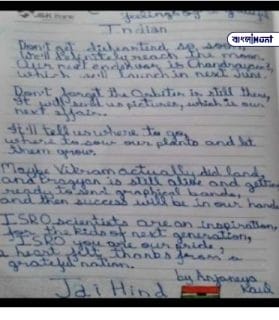 বাংলাHUNT
feelings of
Indian
Don't get disheartned so soon,
We'll definitely reach the moon.
Our next endeavour is Chandrayan 3,
which will launch in next June.
Don't forget the Orbiter is still there,
It will send us pictures, which is our
next affair.
It'll tell us where to go,
where to sow our plants and let
them grow.
Maybe Vikram actually did land,
and Pragyan is still alive and getting
ready to send graphical bands,
and then success will be in our hands.
ISRO scientists are an inspiration,
for the kids of next generation,
"ISRO you are our pride"
a heart felt thanks from a
grateful nation.
by Anjaneya
Kaul
Jai Hind